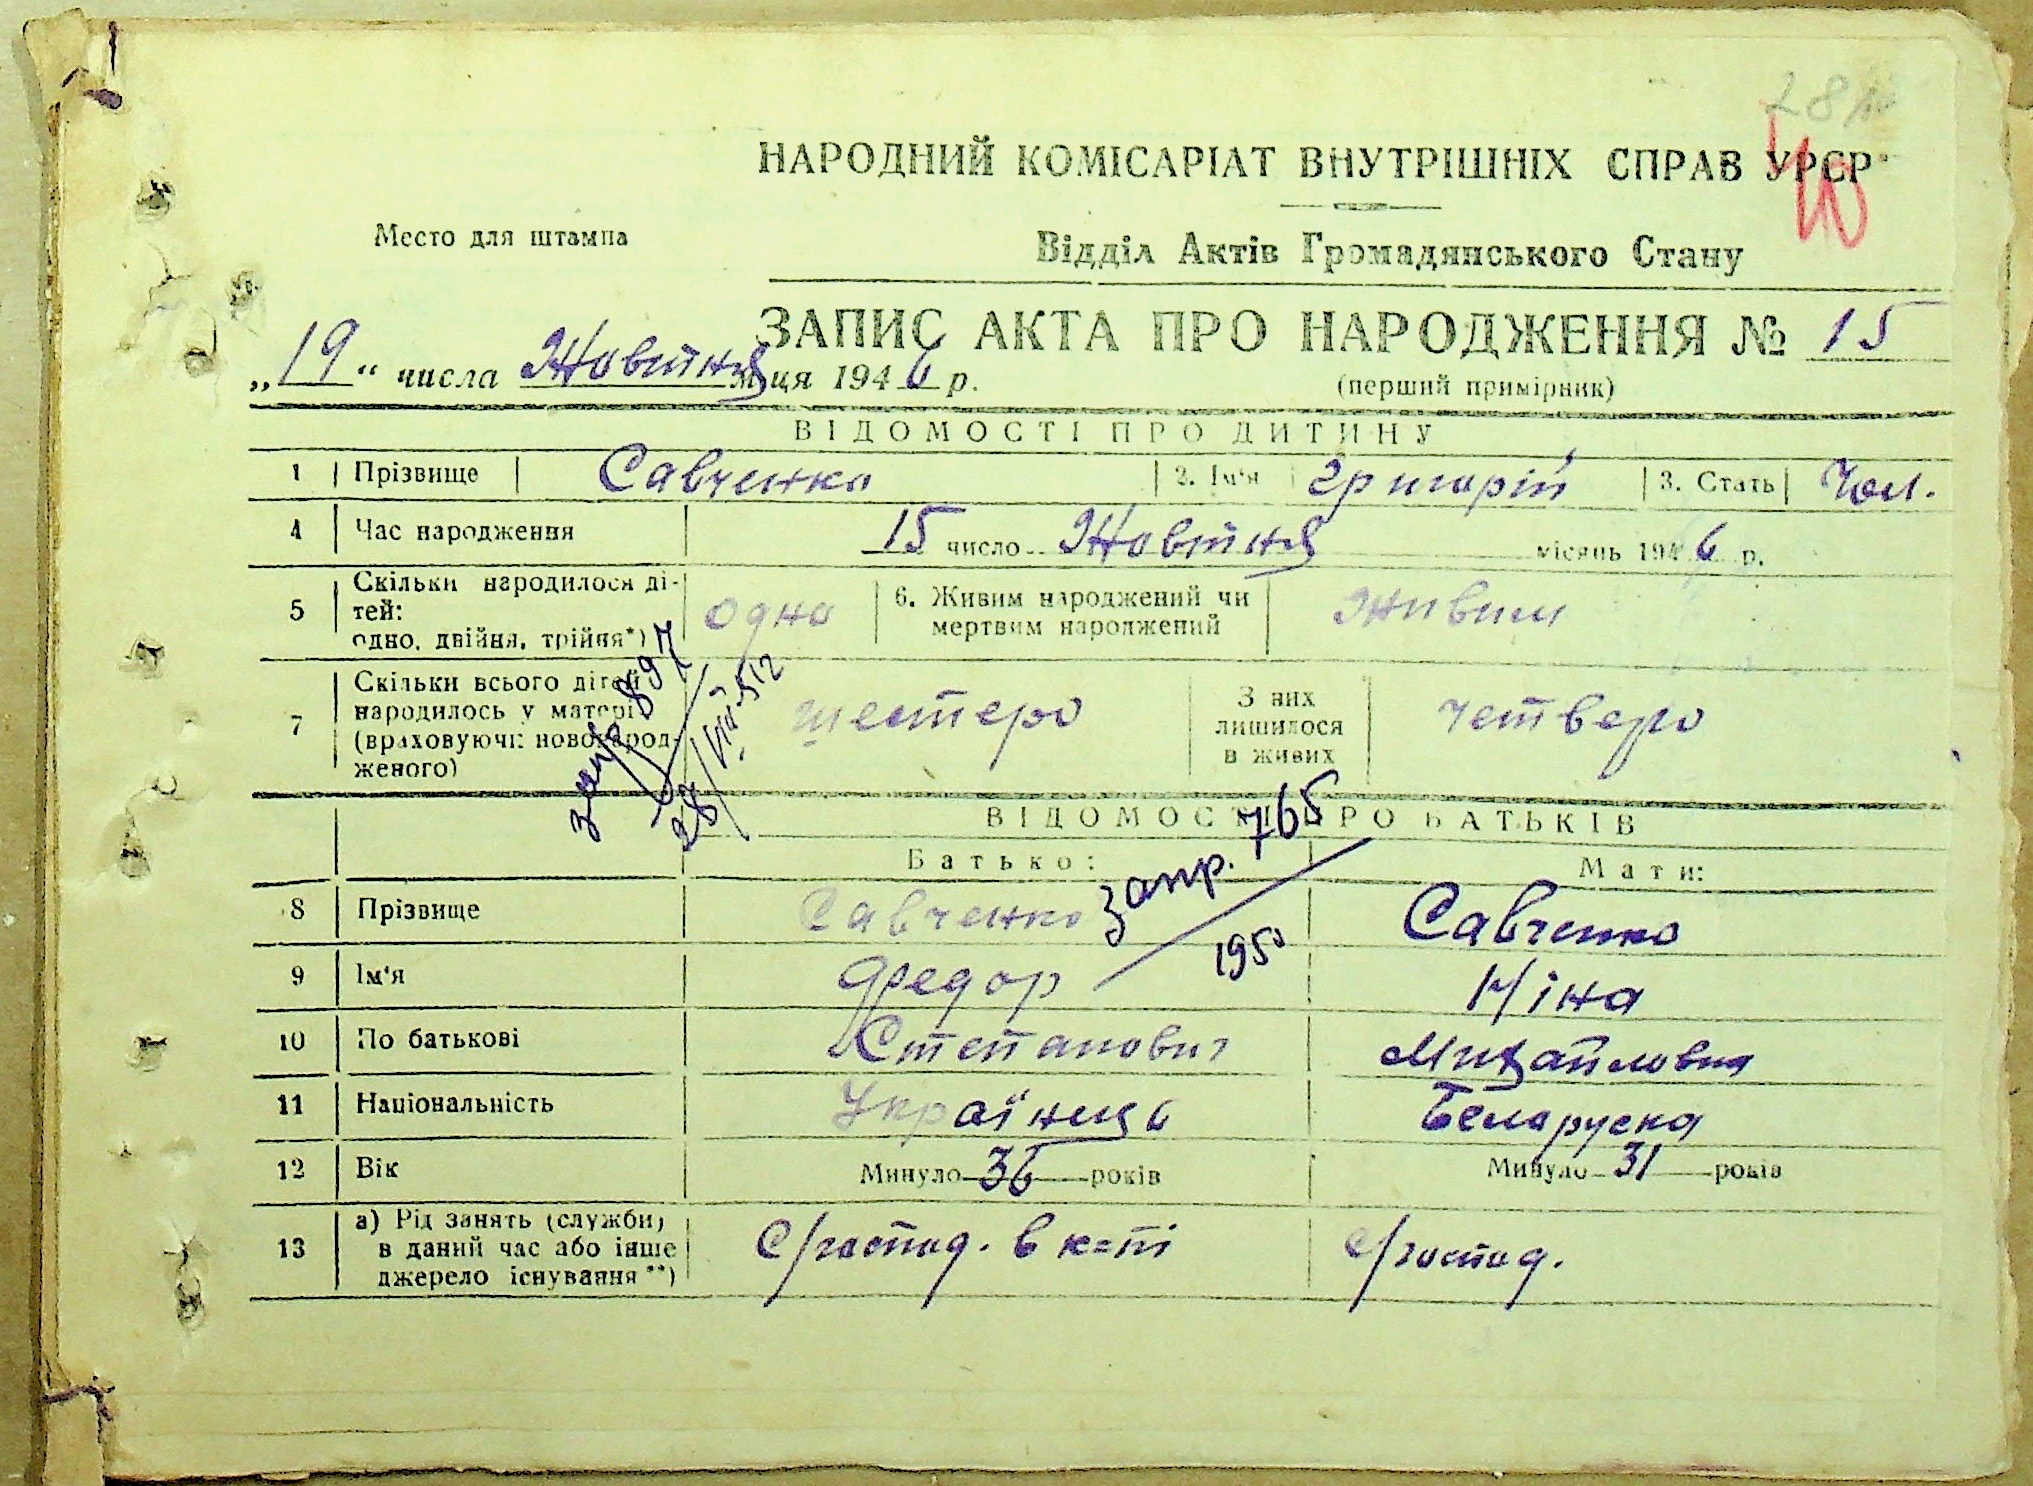 НАРОДНИЙ КОМІСАРІАТ ВНУТРІШНІХ СПРАВ УРСР
40
Место для штампа
Відділ Актів Громадянського Стану
ЗАПИС АКТА ПРО НАРОДЖЕННЯ № 15
„19“ числа Жовтня м-ця 1946 р.
(перший примірник)
ВІДОМОСТІ ПРО ДИТИНУ
1 Прізвище Савченко 2. Ім'я Григорій 3. Стать Чол.
4 Час народження 15 число Жовтня місяць 1946 р.
5 Скільки народилося ді-
тей:
одно, двійня, трійня*) одно 6. Живим народжений чи
мертвим народжений Живим
7 Скільки всього дітей
народилось у матері
(враховуючи новонарод-
женого) шестеро З них
лишилося
в живих четверо
запр 897
ВІДОМОСТІ ПРО БАТЬКІВ
Батько: Мати:
запр. 765
1950
8 Прізвище Савченко Савченко
9 Ім'я Федор Ніна
10 По батькові Степанович Михайловна
11 Національність Українець Беларуска
12 Вік Минуло 36 років Минуло 31 років
13 а) Рід занять (служби)
в даний час або інше
джерело існування**) С/господ. в к-ті С/господ.